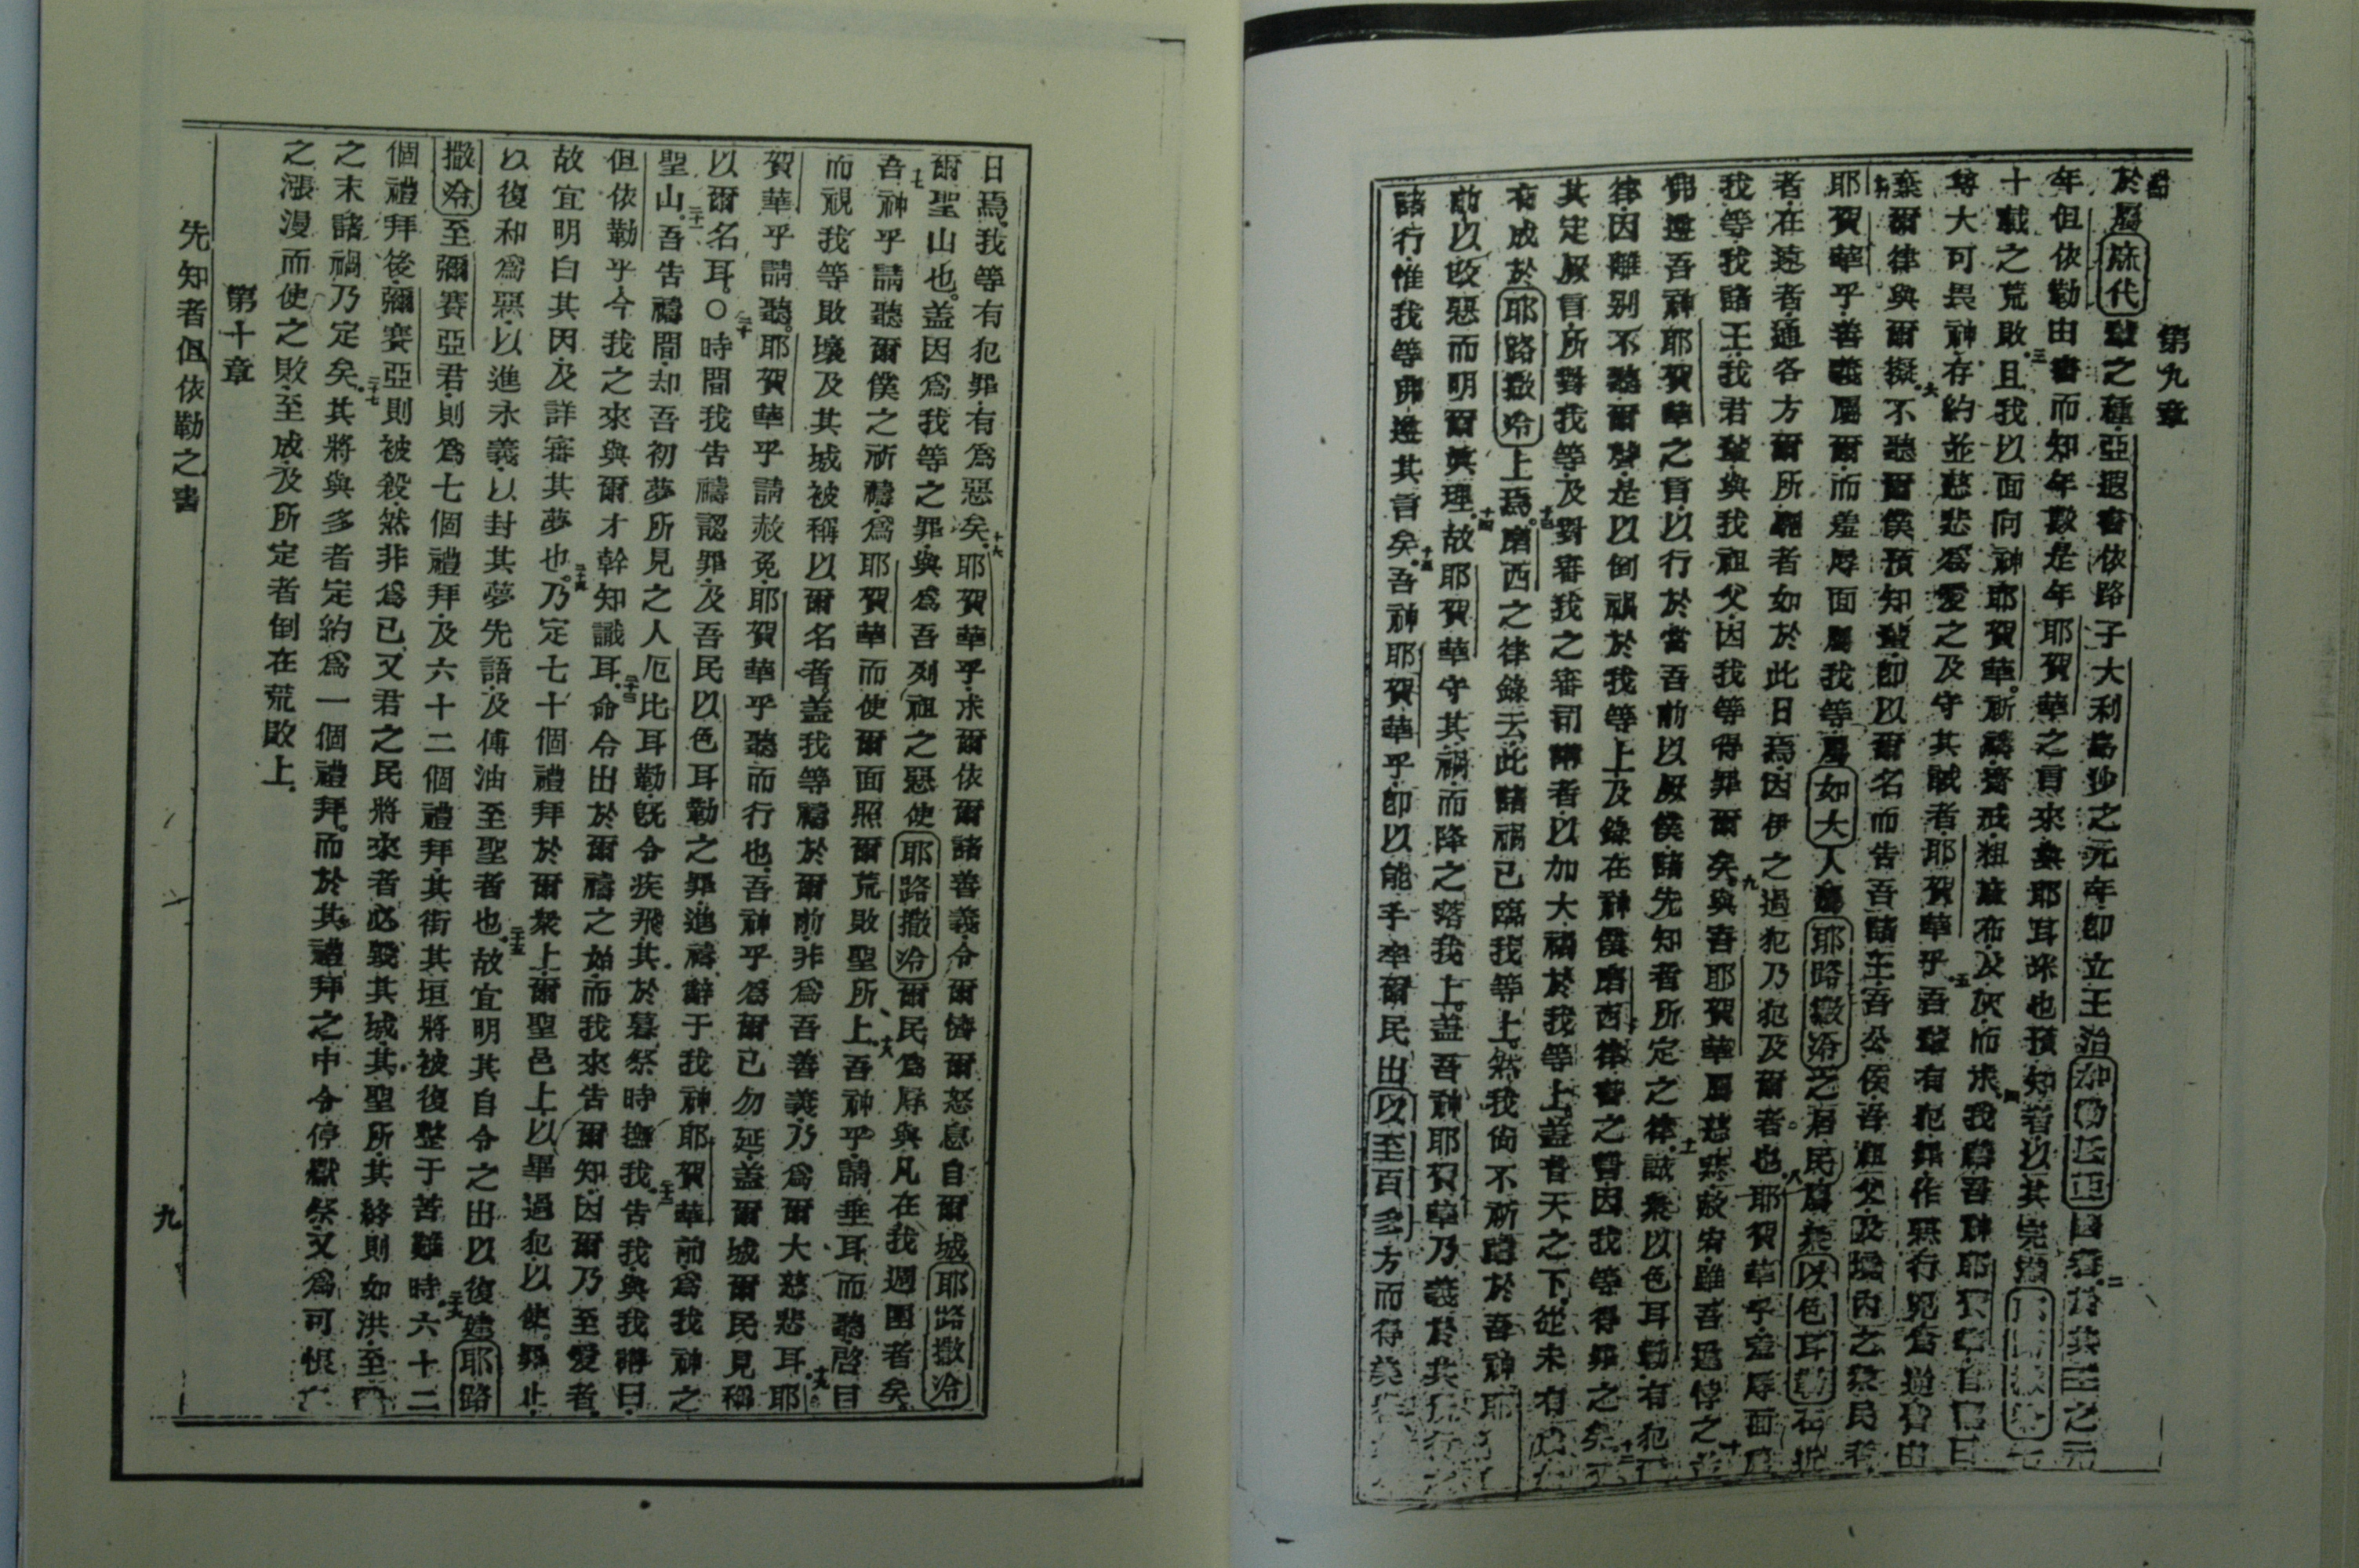 第九章
於屬蔴代輩之種亞遐書依路子大利烏沙之元年即立王治加勒氐亞國者二於其王之元
年但依勒由書而知年數是年耶賀華之言來與耶耳米也預知者以其完滿耶路撒冷
十載之荒敗三且我以面向神耶賀華祈禱齋戒粗蔴布及灰而求四我禱吾神耶賀華自認曰
尊大可畏神存約並慈悲為愛之及守其誡者耶賀華乎五吾輩有犯罪作惡行兇為逆皆由
棄爾律與爾擬六不聽爾僕預知輩即以爾名而告吾諸王吾公侯吾祖父及境內之眾民者
耶賀華乎善義屬爾而羞辱面屬我等屬如大人與耶路撒冷之居民屬眾以色耳勒在近
者在遠者通各方爾所處者如於此日焉因伊之過犯乃犯及爾者也八耶賀華乎羞辱面屬
我等我諸王我君輩與我祖父因我等得罪爾矣九與吾耶賀華屬慈悲赦宥雖吾逆悖之十
弗遵吾神耶賀華之言以行於當吾前以厥僕諸先知者所定之律十一誠眾以色耳勒有犯
律因離别不聽爾聲是以倒禍於我等上及錄在神僕磨西律書之誓因我等得罪之矣十二
其定厥言所對我等及對審我之審司輩者以加大禍於我等上蓋普天之下從未有
有成於耶路撒冷上焉十三磨西之律錄云此諸禍已臨我等上然我尚不祈禱於吾神耶
前以改惡而明爾真理十四故耶賀華守其禍而降之落我上蓋吾神耶賀華乃義於其
諸行惟我等弗遵其言矣十五吾神耶賀華乎即以能手牽爾民出以至百多方而得
日焉我等有犯罪有為惡矣十六耶賀華乎求爾依爾諸善義令爾憤爾怒息自爾城耶路撒冷
爾聖山也蓋因為我等之罪與為吾列祖之惡使耶路撒冷爾民為辱與凡在我週圍者矣
十七吾神乎請聽爾僕之祈禱為耶賀華而使爾面照爾荒敗聖所上十八吾神乎請垂耳而聽啓目
而視我等敗壞及其城被稱以爾名者蓋我等禱於爾前非為吾善義乃為爾大慈悲耳十九耶
賀華乎請聽耶賀華乎請赦免耶賀華乎聽而行也吾神乎為爾已勿延蓋爾城爾民見稱
以爾名耳○二十時間我告禱認罪及吾民以色耳勒之罪進禱辭于我神耶賀華前為我神之
聖山二十一吾告禱間却吾初夢所見之人厄比耳勒旣令疾飛其於暮祭時撫我二十二告我與我講曰
但依勒乎今我之來與爾才幹知識耳二十三命令出於爾禱之始而我來告爾知因爾乃至愛者
故宜明白其因及詳審其夢也二十四乃定七十個禮拜於爾衆上爾聖邑上以畢過犯以使罪止
以復和為惡以進永義以封其夢先語及傅油至聖者也二十五故宜明其自令之出以復建耶路
撒冷至彌賽亞君則為七個禮拜及六十二個禮拜其街其垣將被復整于苦難時二十六六十二
個禮拜後彌賽亞則被殺然非為已又君之民將來者必毀其城其聖所其終則如洪至
之末諸禍乃定矣二十七其將與多者定約為一個禮拜而於其禮拜之中令停獻祭又為可恨
之漲漫而使之敗至成及所定者倒在荒敗上
第十章
先知者但依勒之書
九